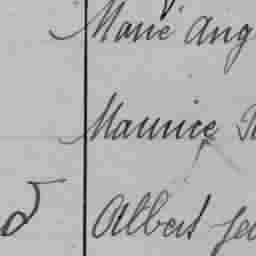 Marie Ang
Maurice
d Albert